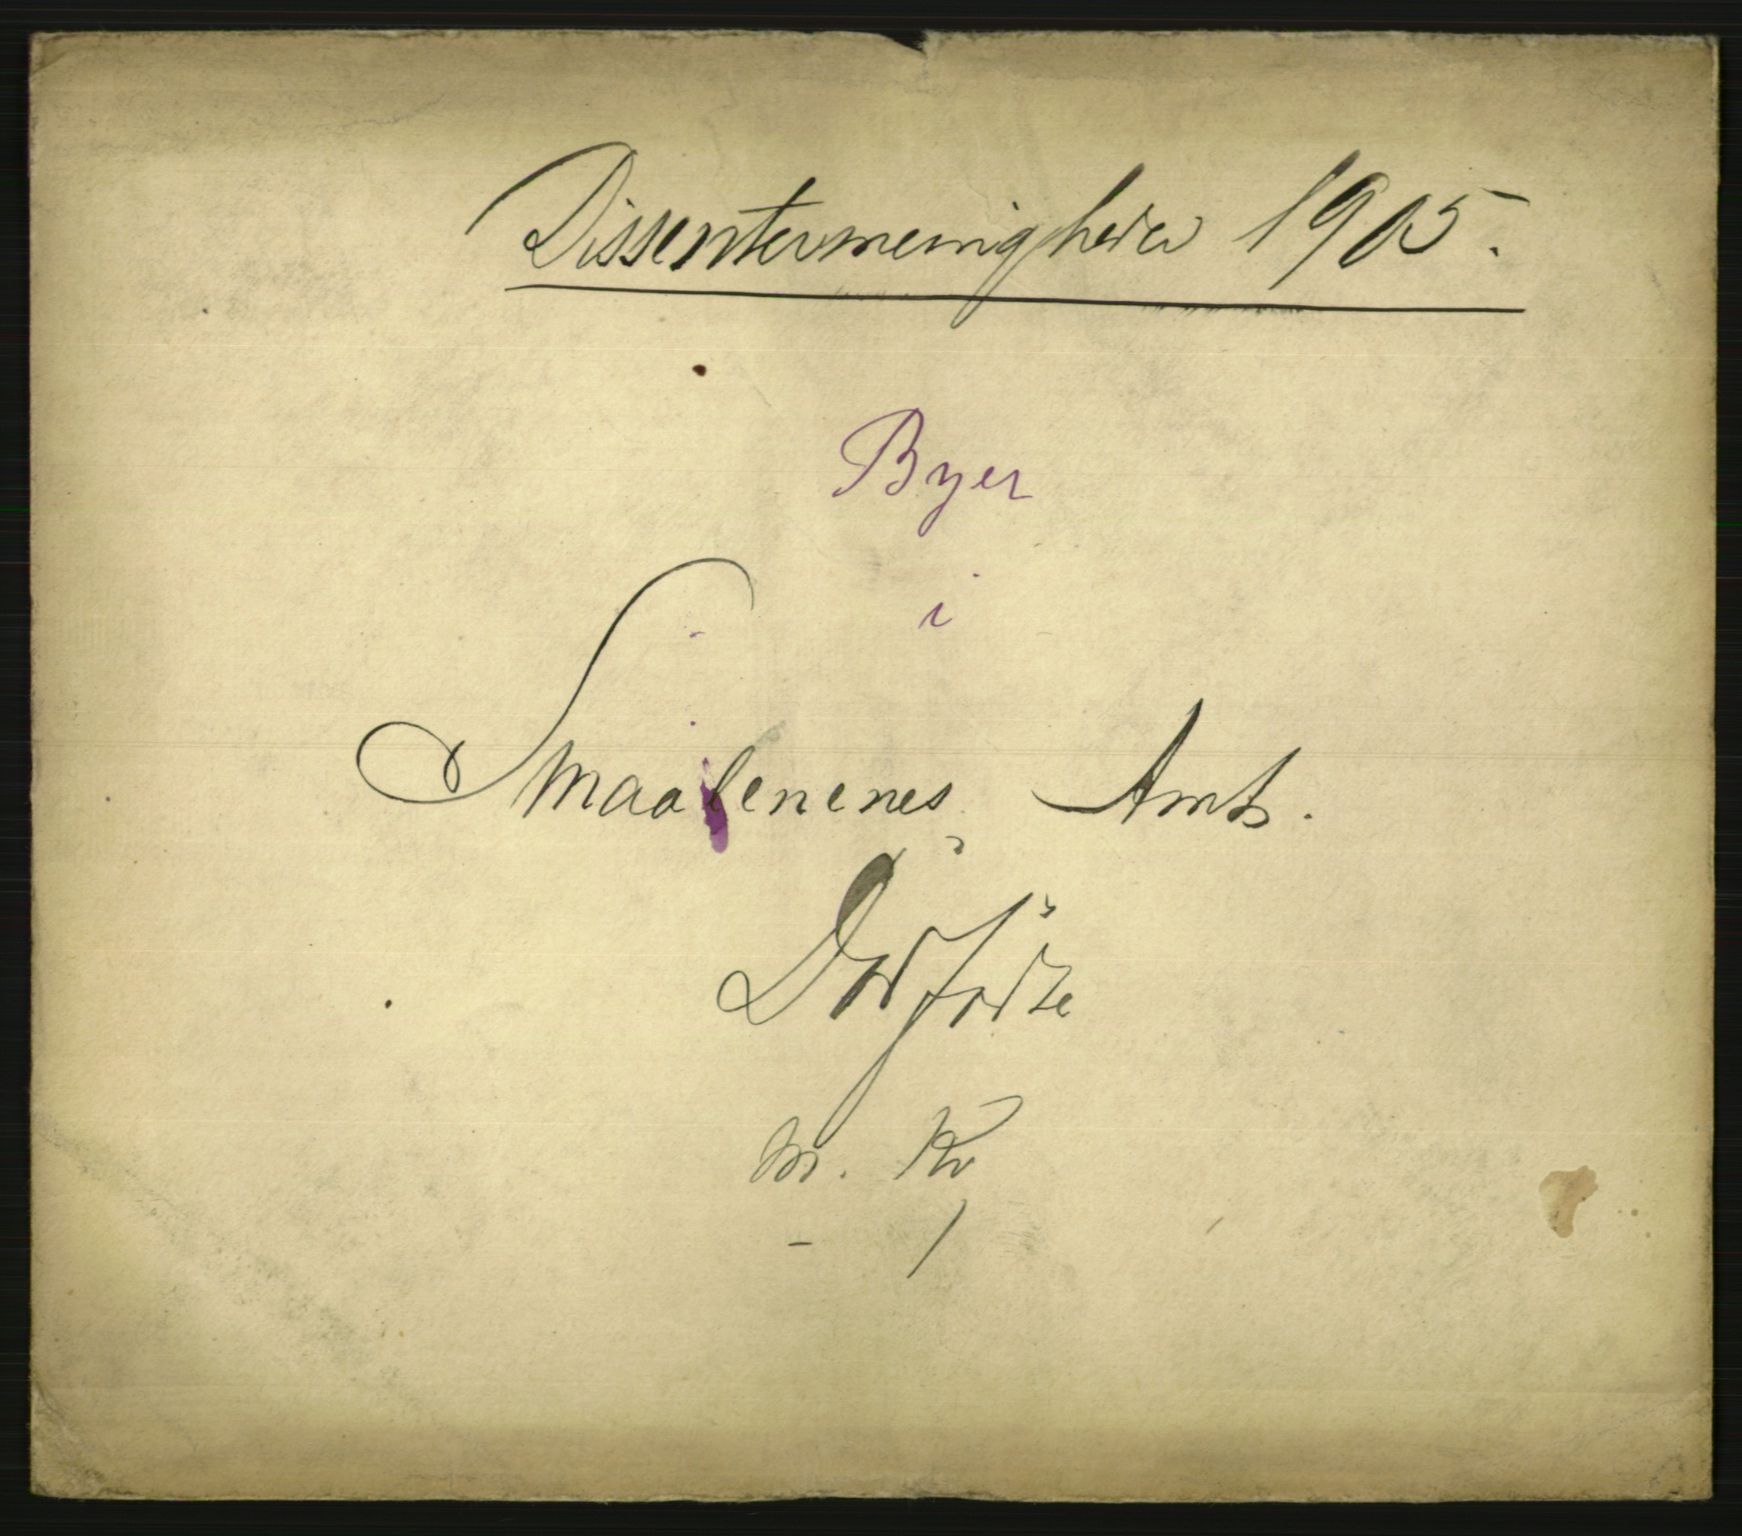 Dissentermenigheder 1905.
Byer
i
Smaalenenes Amt.
Dødfødte
M. Kv
- 1